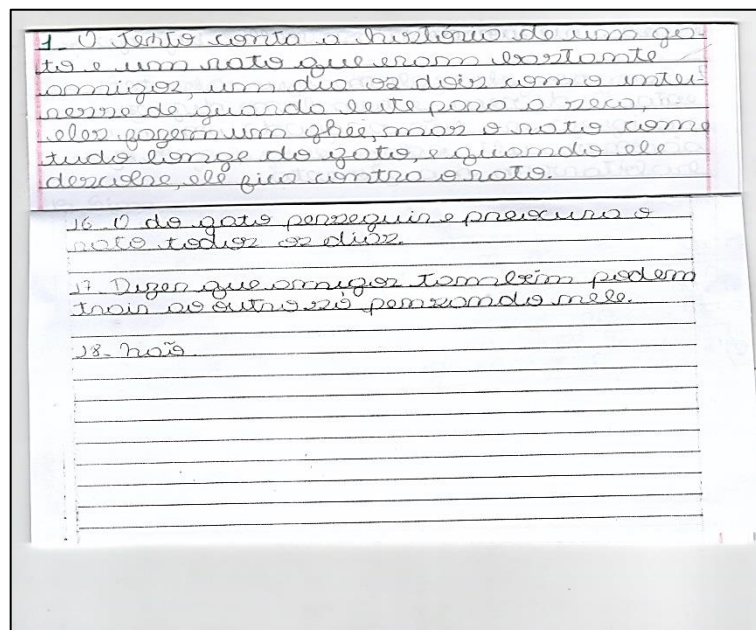 1- O texto conta a história de um ga-
to e um rato que eram bastante
amigos, um dia os dois com o intei-
nesse de guarda leite para a seca,
eles fazem um ghee, mas o rato come
tudo longe do gato, e quando ele
descobre, ele fica contra o rato.
16- O do gato perseguir e preocura o
rato todos os dias.
17- Dizer que amigos também podem
trair ao outro só pensando nele.
18- não